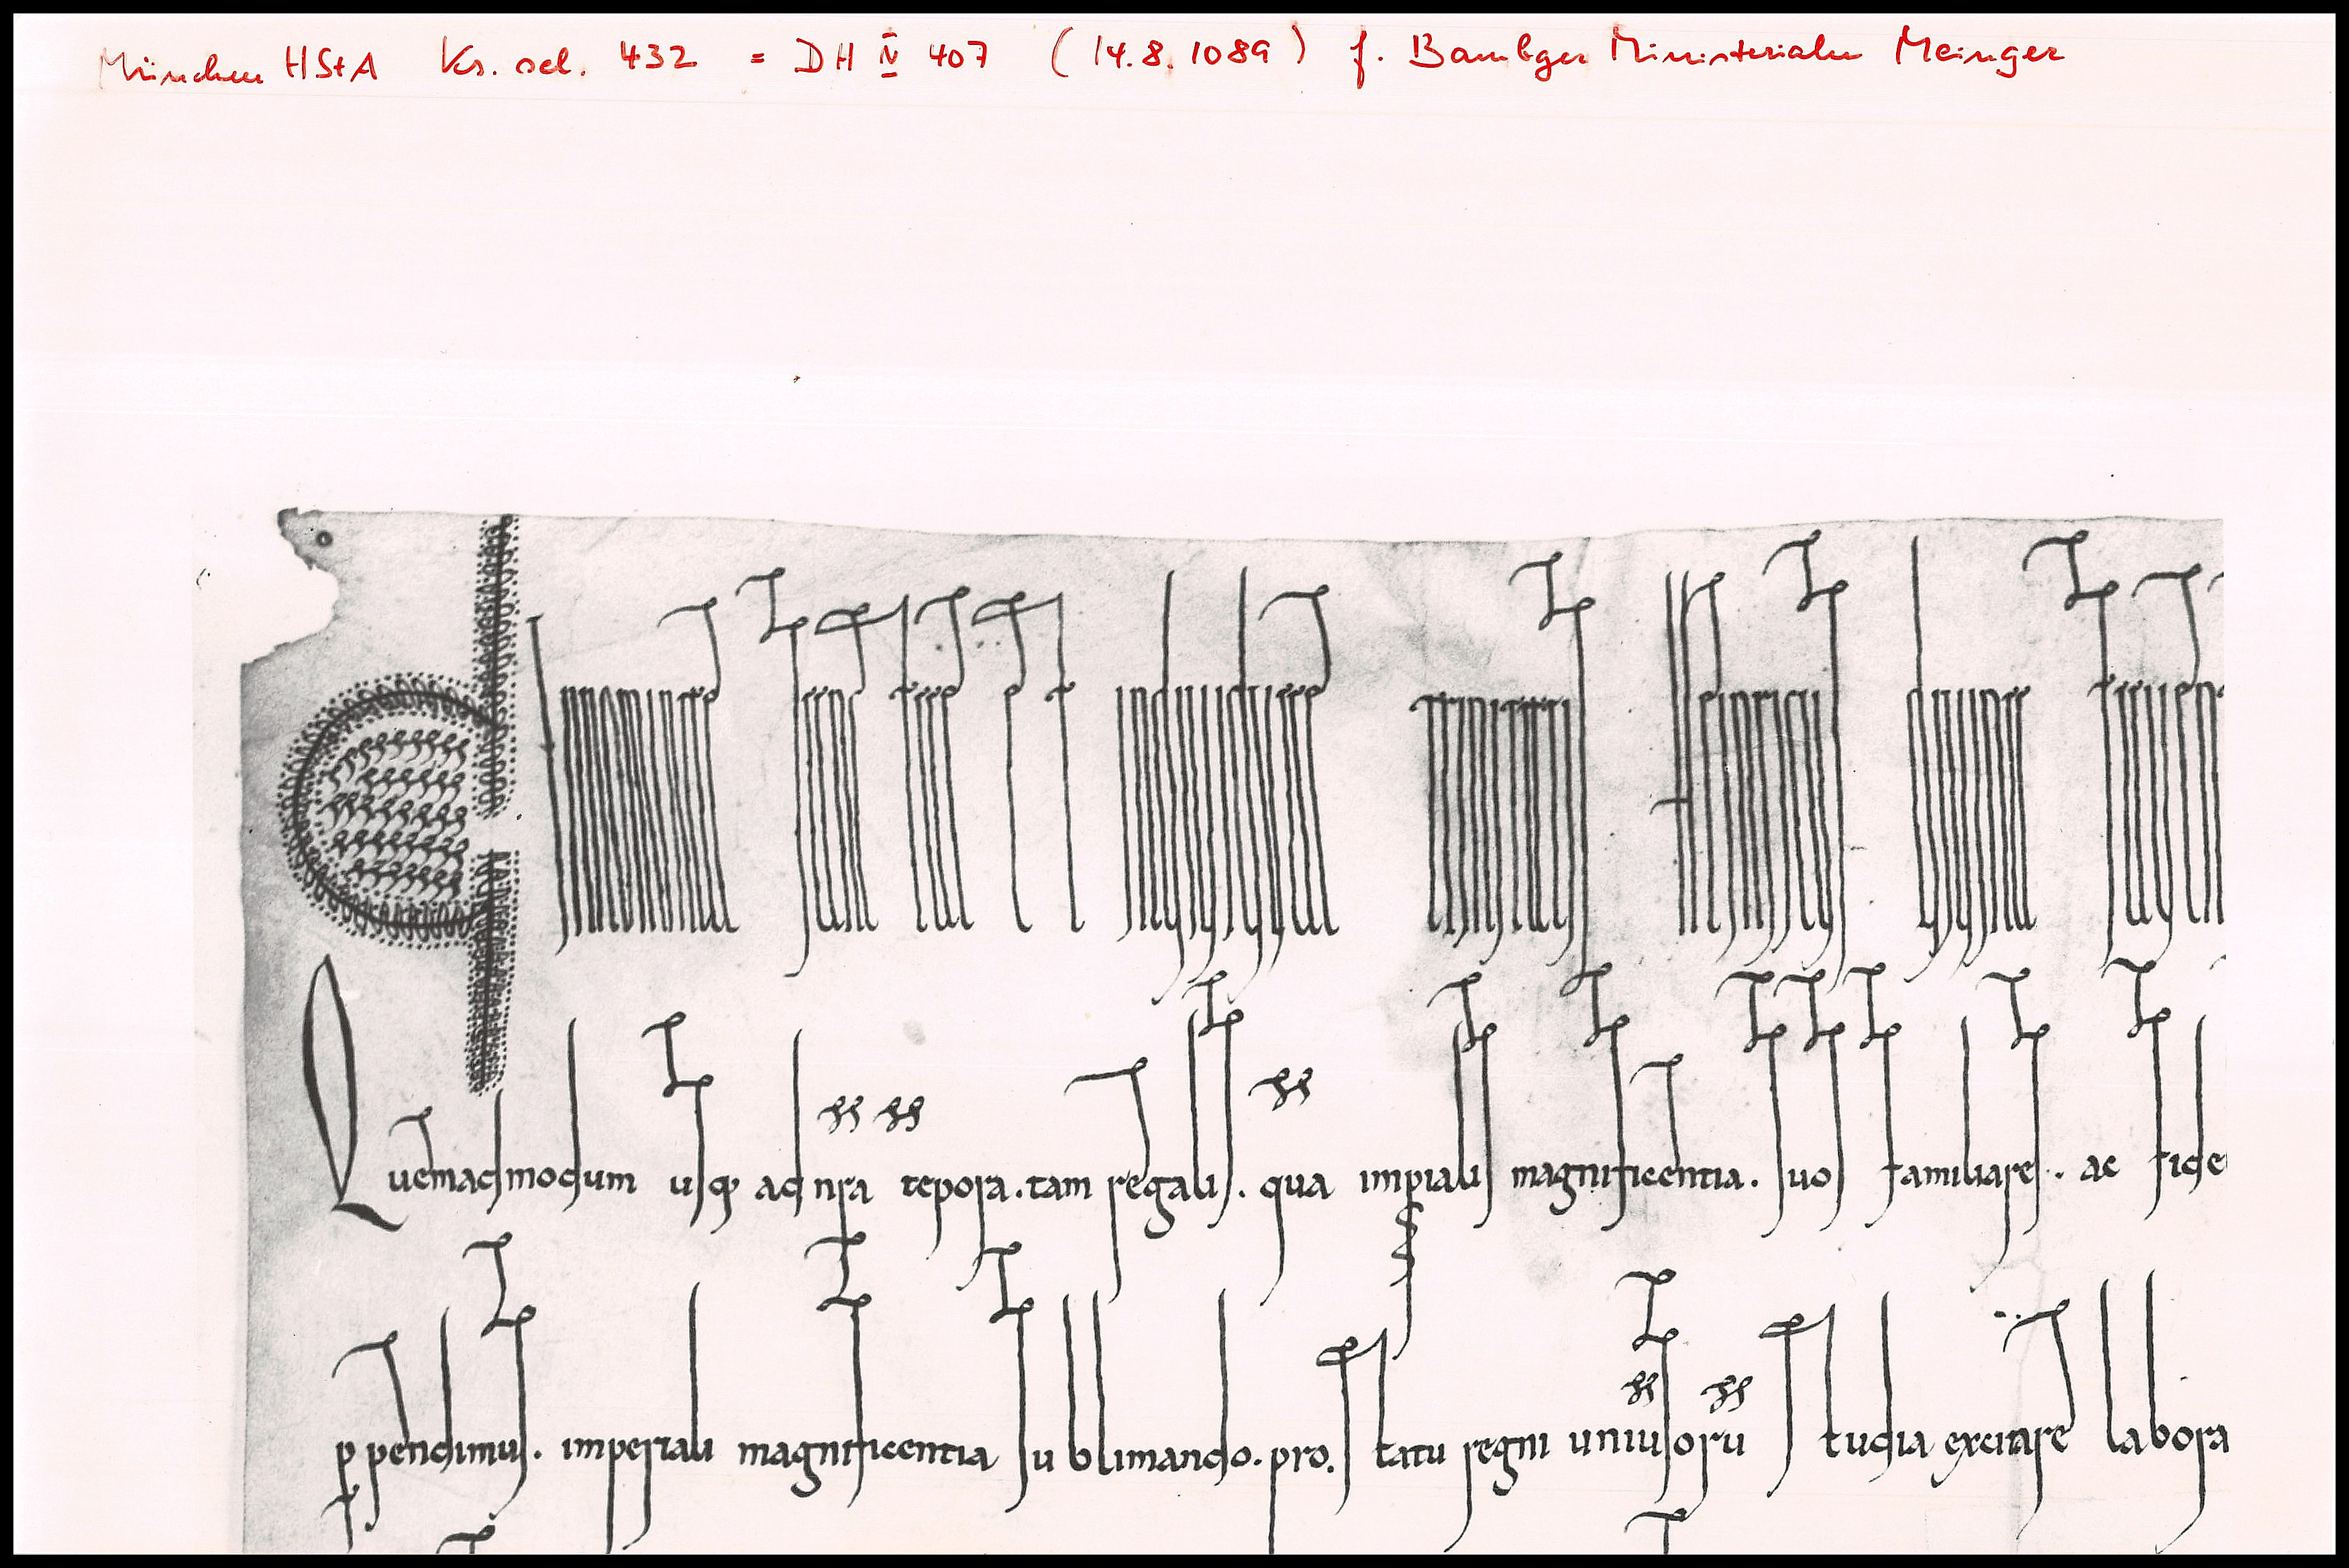 München HStA Ks. sel. 432 = DH IV 407 (14.8.1089) f. Bambger Ministerialen Meinger
In nomine sanctae et individuae trinitatis Heinricus divina faven
Quemadmodum usq; ad nra tepora. tam regalis. qua impialis magnificentia. suos familiares. ac fide
ppendimus. imperiali magnificentia sublimando. pro. statu regni universoru studia excitare labora